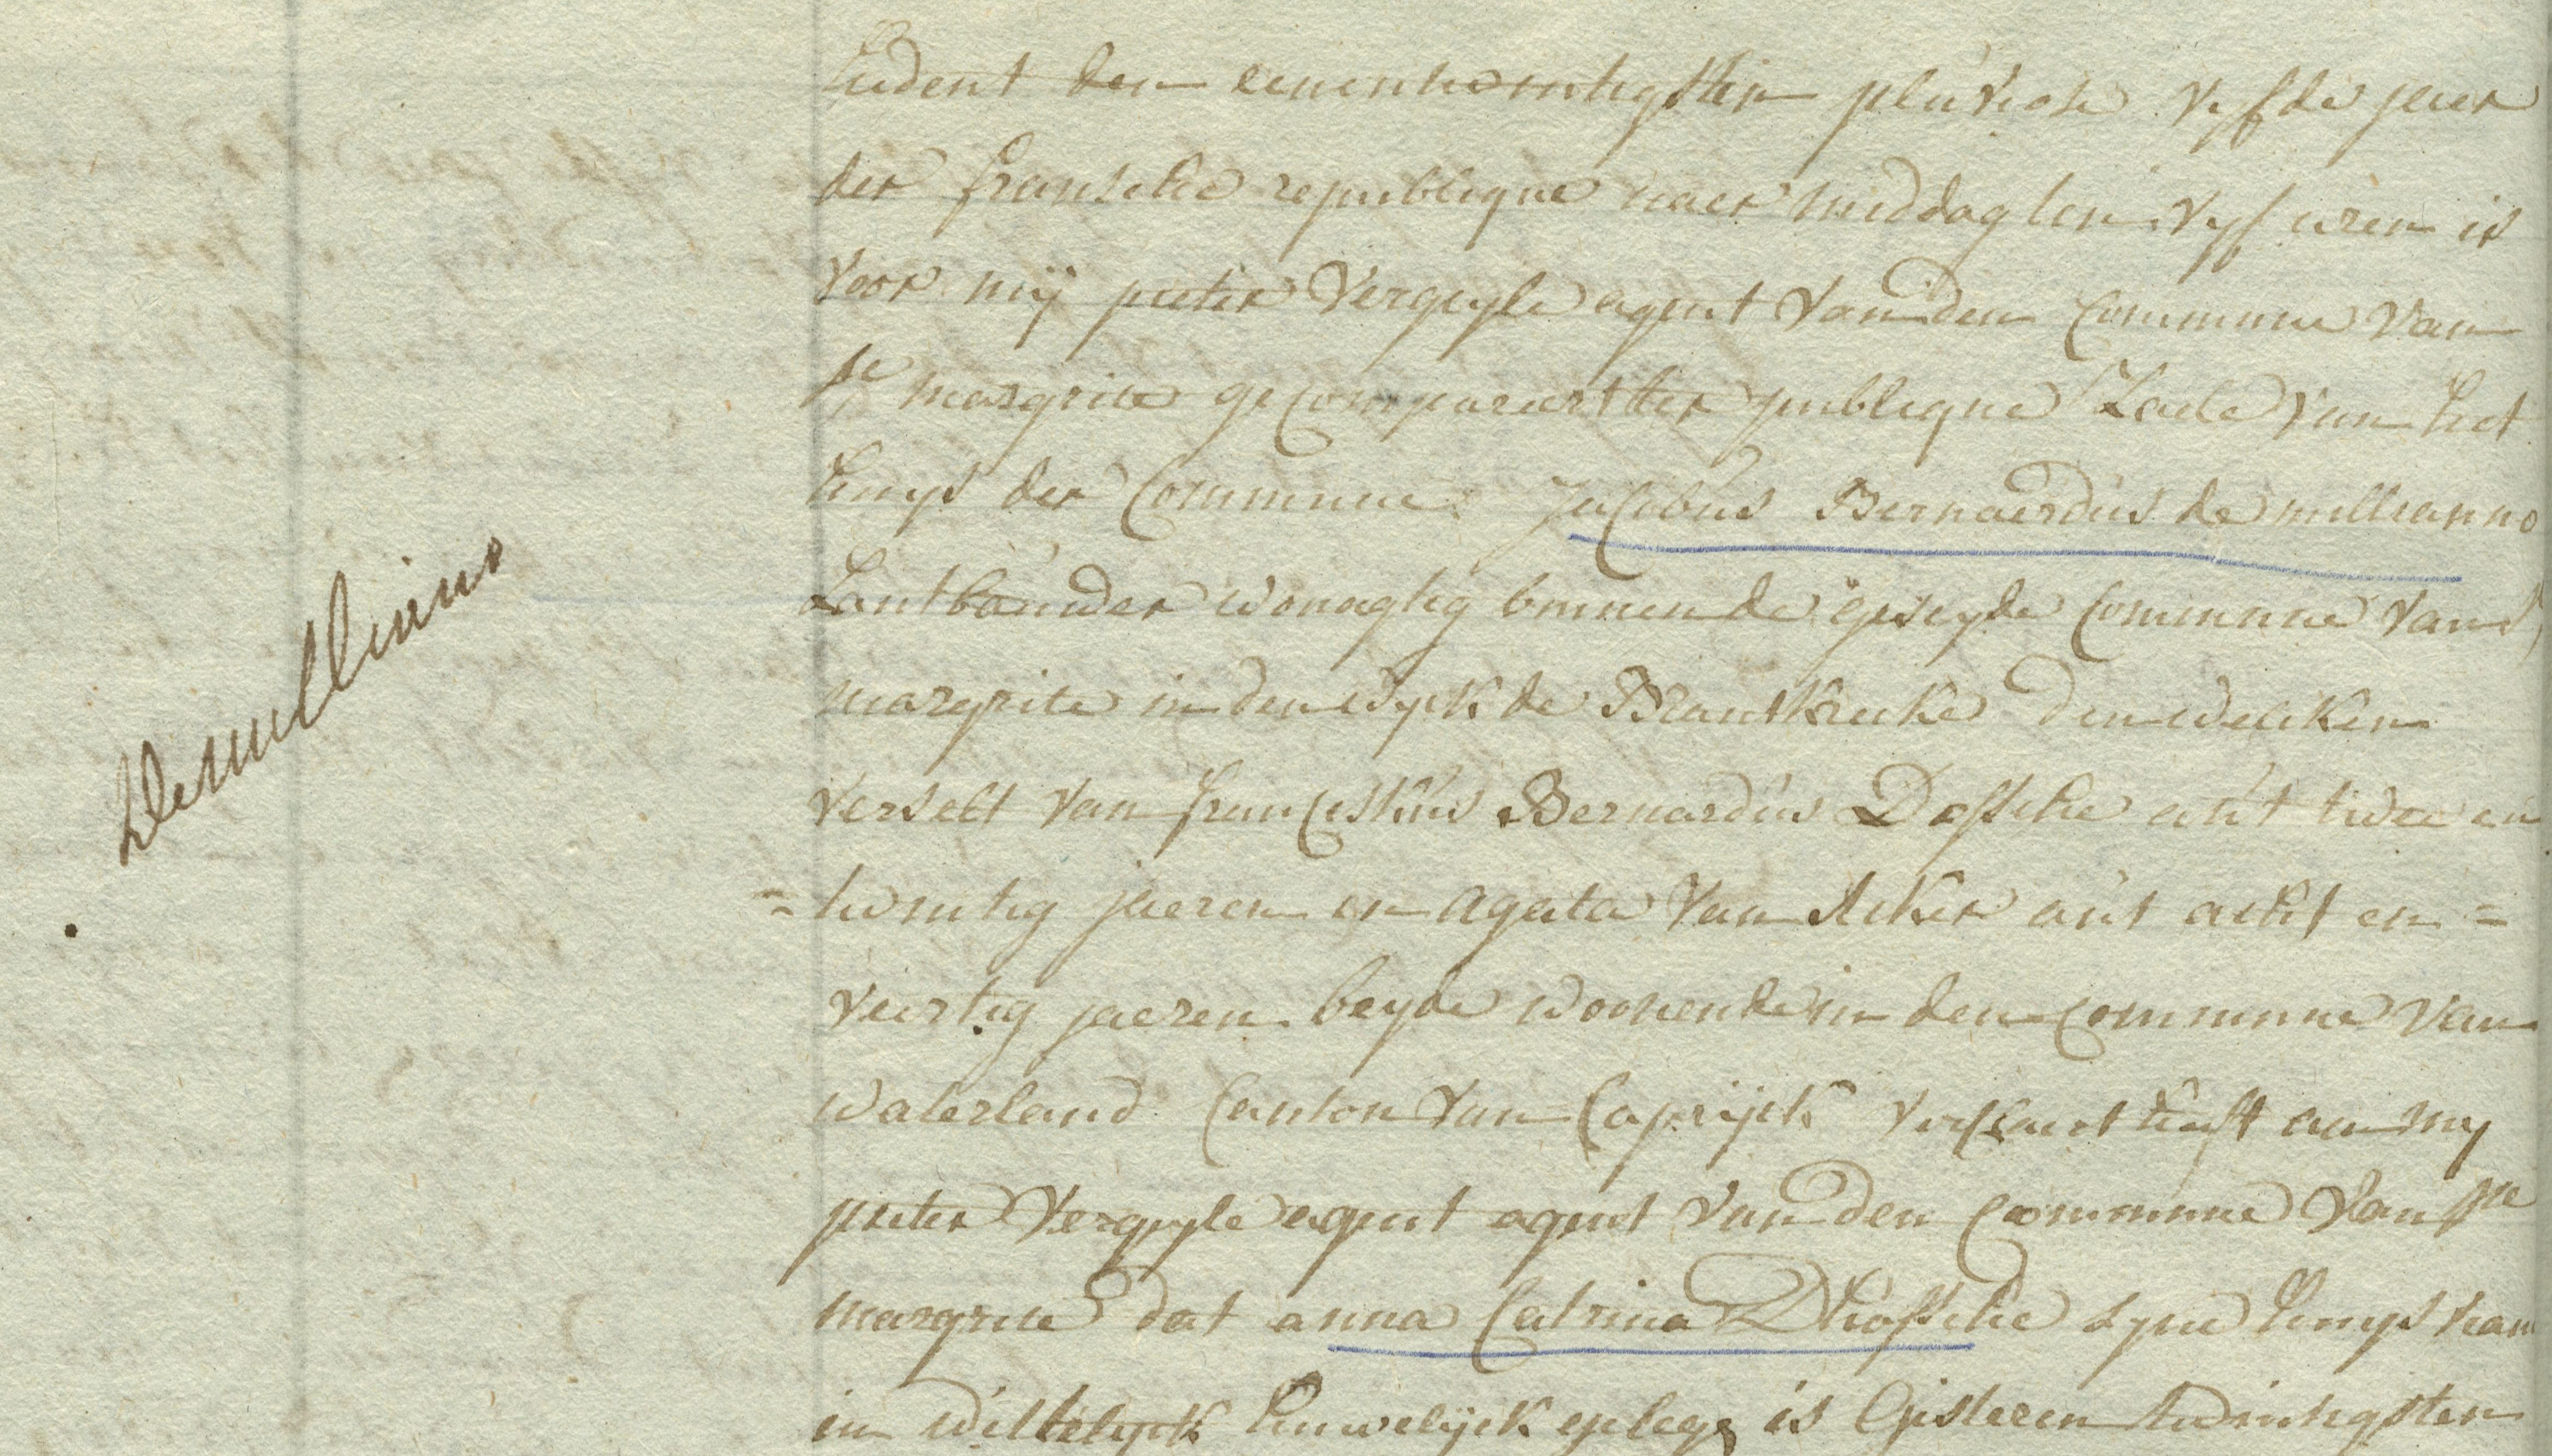 heden den eenentwintigsten pluviose vyfde jaer
der fransche republique naer middag ten vyf uren is
voor mij pieter Vergeyle agent van den Commune van
ste margrite gecompareert ter publique Zaele van het
huys der Commune Jacobus Bernaerdus de mullianno
Lantbauwer wonagtig binnen de geseyde Commune van
margrite in den wyck de Brantkreke den welcken
Demullinno
verselt van franciskus Bernardus Dossche aut twee en
= twintig jaeren en agata Van Acker aut acht en =
veertig jaeren beyde woonende in den commune van
waterland Canton van Caprijck verclaert heeft aen my
pieter Vergeyle agent agent van den Commune van ste
margrite dat anna Catrina Dhossche syne huysvrau
in wittelyck huwelijck is Gisteren twintigsten